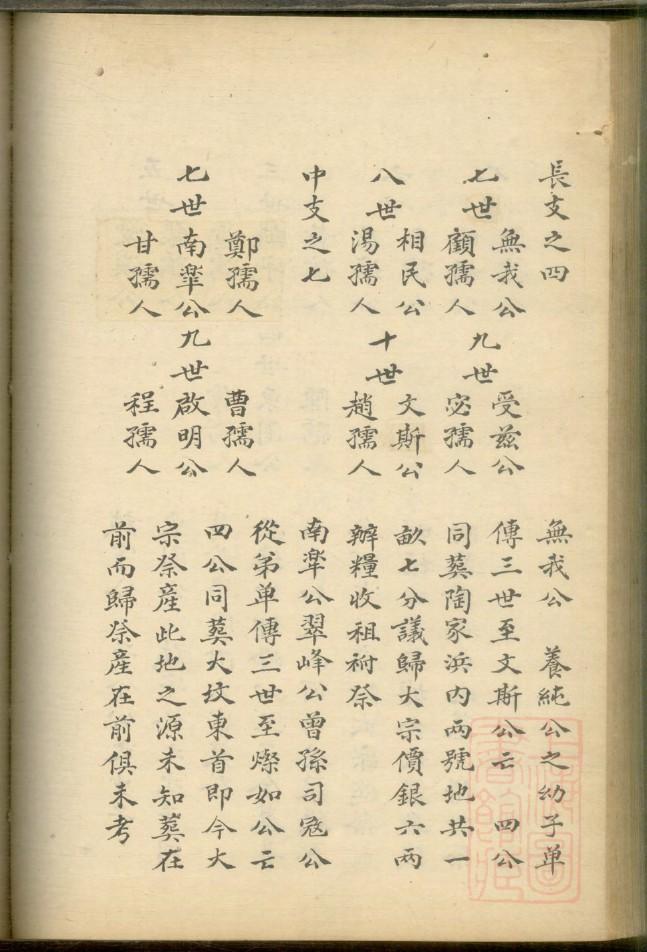 長支之四
七世 無我公 九世 受茲公
顧孺人 宓孺人
八世 相民公 十世 文斯公
湯孺人 趙孺人
中支之七
鄭孺人 曹孺人
七世南犖公九世啟明公
甘孺人 程孺人
無我公 養純公之幼子单
傳三世至文斯公云 四公
同葬陶家浜内兩號地共一
畝七分議歸大宗價銀六两
辦糧收租祔祭
南犖公翠峰公曾孫司寇公
從弟单傳三世至燦如公云
四公同葬大坟東首即今大
宗祭產此地之源未知葬在
前而歸祭產在前俱未考